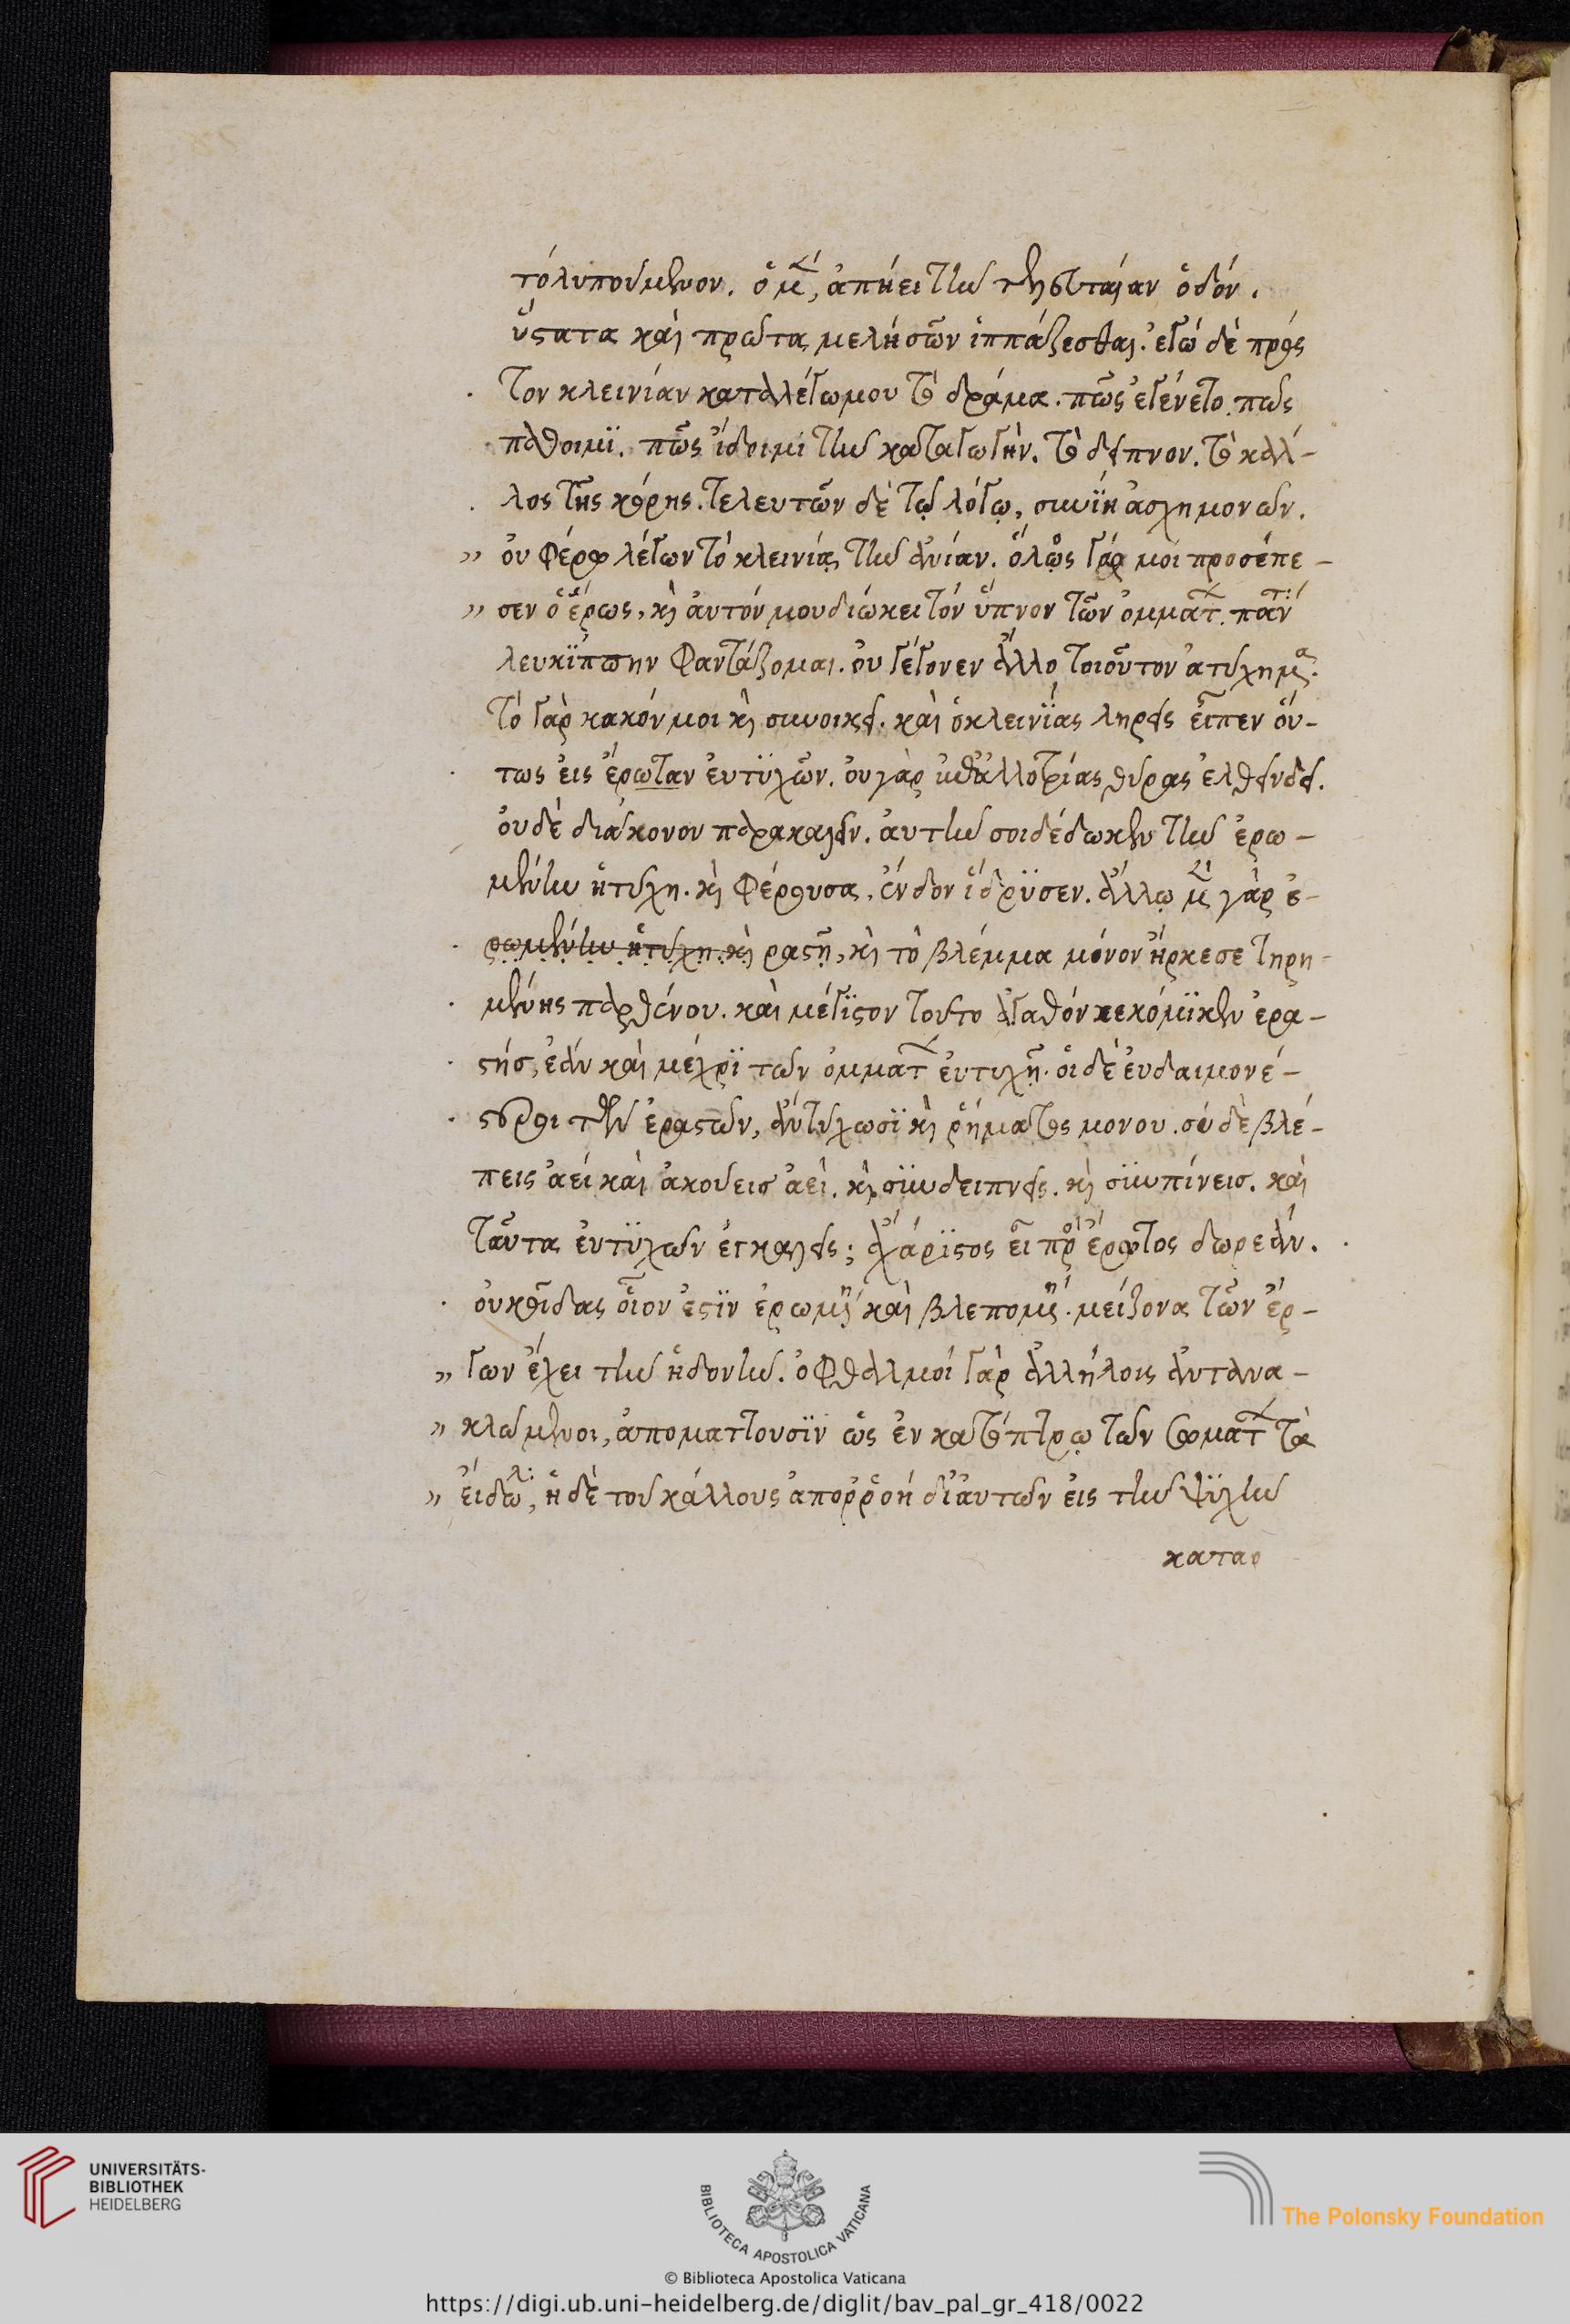 τὸ λυπούμενον. ὁ μὲν, ἀπήει τὴν τελευταίαν ὁδόν.
ὕστατα καὶ πρῶτα μελήσων ἱππάζεσθαι. ἐγὼ δὲ πρὸς
τον κλεινίαν καταλέγω μου τὸ δρᾶμα. πῶς ἐγένετο. πῶς
πάθοιμι. πῶς ἴδοιμι τὴν καταγωγήν. τὸ δεῖπνον. τὸ κάλ-
λος τῆς κόρης. τελευτῶν δὲ τῷ λόγῳ, συνίην ἀσχημονῶν.
οὐ φέρω λέγων τὸ κλεινία, τὴν ἀνίαν. ὅλως γάρ μοι προσέπε-
σεν ὁ ἔρως, κὶ αὐτόν μου διώκει τὸν ὕπνον τῶν ὀμμάτων. πάντοτε
λευκίππην φαντάζομαι. οὐ γέγονεν ἄλλο τοιοῦτον ἀτύχημα.
τὸ γὰρ κακόν μοι κὶ συνοικεῖ. καὶ ὁ κλεινίας ληρεῖς εἶπεν οὕ-
τως εἰς ἔρωταν εὐτυχῶν. οὐ γὰρ ἐπ' ἀλλοτρίας θύρας ἐλθεῖν δεῖ.
οὐδὲ διάκονον παρακαλεῖν. αὐτήν σοι δέδωκεν τὴν ἐρω-
μένην ἡ τύχη. κὶ φέρουσα, ἔνδον ἵδρυσεν. ἄλλῳ μὲν γὰρ ἐ-
ρωμένην ἡ τύχη. κὶ ραστῇ, κὶ τὸ βλέμμα μόνον ἤρκεσε τηρη-
μένης παρθένου. καὶ μέγιστον τοῦτο ἀγαθόν κεκόμικεν ἐρα-
στής, ἐὰν καὶ μέχρι τῶν ὀμμάτων εὐτυχῇ. οἱ δὲ εὐδαιμονέ-
στεροι τῶν ἐραστῶν, ἂν τύχωσι κὶ ῥήματος μονου. σύ δὲ βλέ-
πεις ἀεί καὶ ἀκούεις ἀεί. κὶ συνδειπνεῖς. κὶ συνπίνεις. καὶ
ταῦτα εὐτυχῶν ἐγκαλεῖς; ἀχάριστος εἶ πρὸς ἔρωτος δωρεάν.
οὐκ οἶδας οἷον ἐστιν ἐρωμένη καὶ βλεπομένη. μείζονα τῶν ἔρ-
γων ἔχει τὴν ἡδονήν. ὀφθαλμοί γὰρ ἀλλήλοις ἀντανα-
κλώμενοι, ἀπομάττουσιν ὡς ἐν κατόπτρῳ τῶν σωμάτων τὰ
εἴδωλα, ἡ δὲ τοῦ κάλλους ἀπορροή δι' αὐτῶν εἰς τὴν ψυχήν
καταρ
UNIVERSITÄTS-
BIBLIOTHEK
HEIDELBERG
BIBLIOTECA APOSTOLICA VATICANA
The Polonsky Foundation
© Biblioteca Apostolica Vaticana
https://digi.ub.uni-heidelberg.de/diglit/bav_pal_gr_418/0022